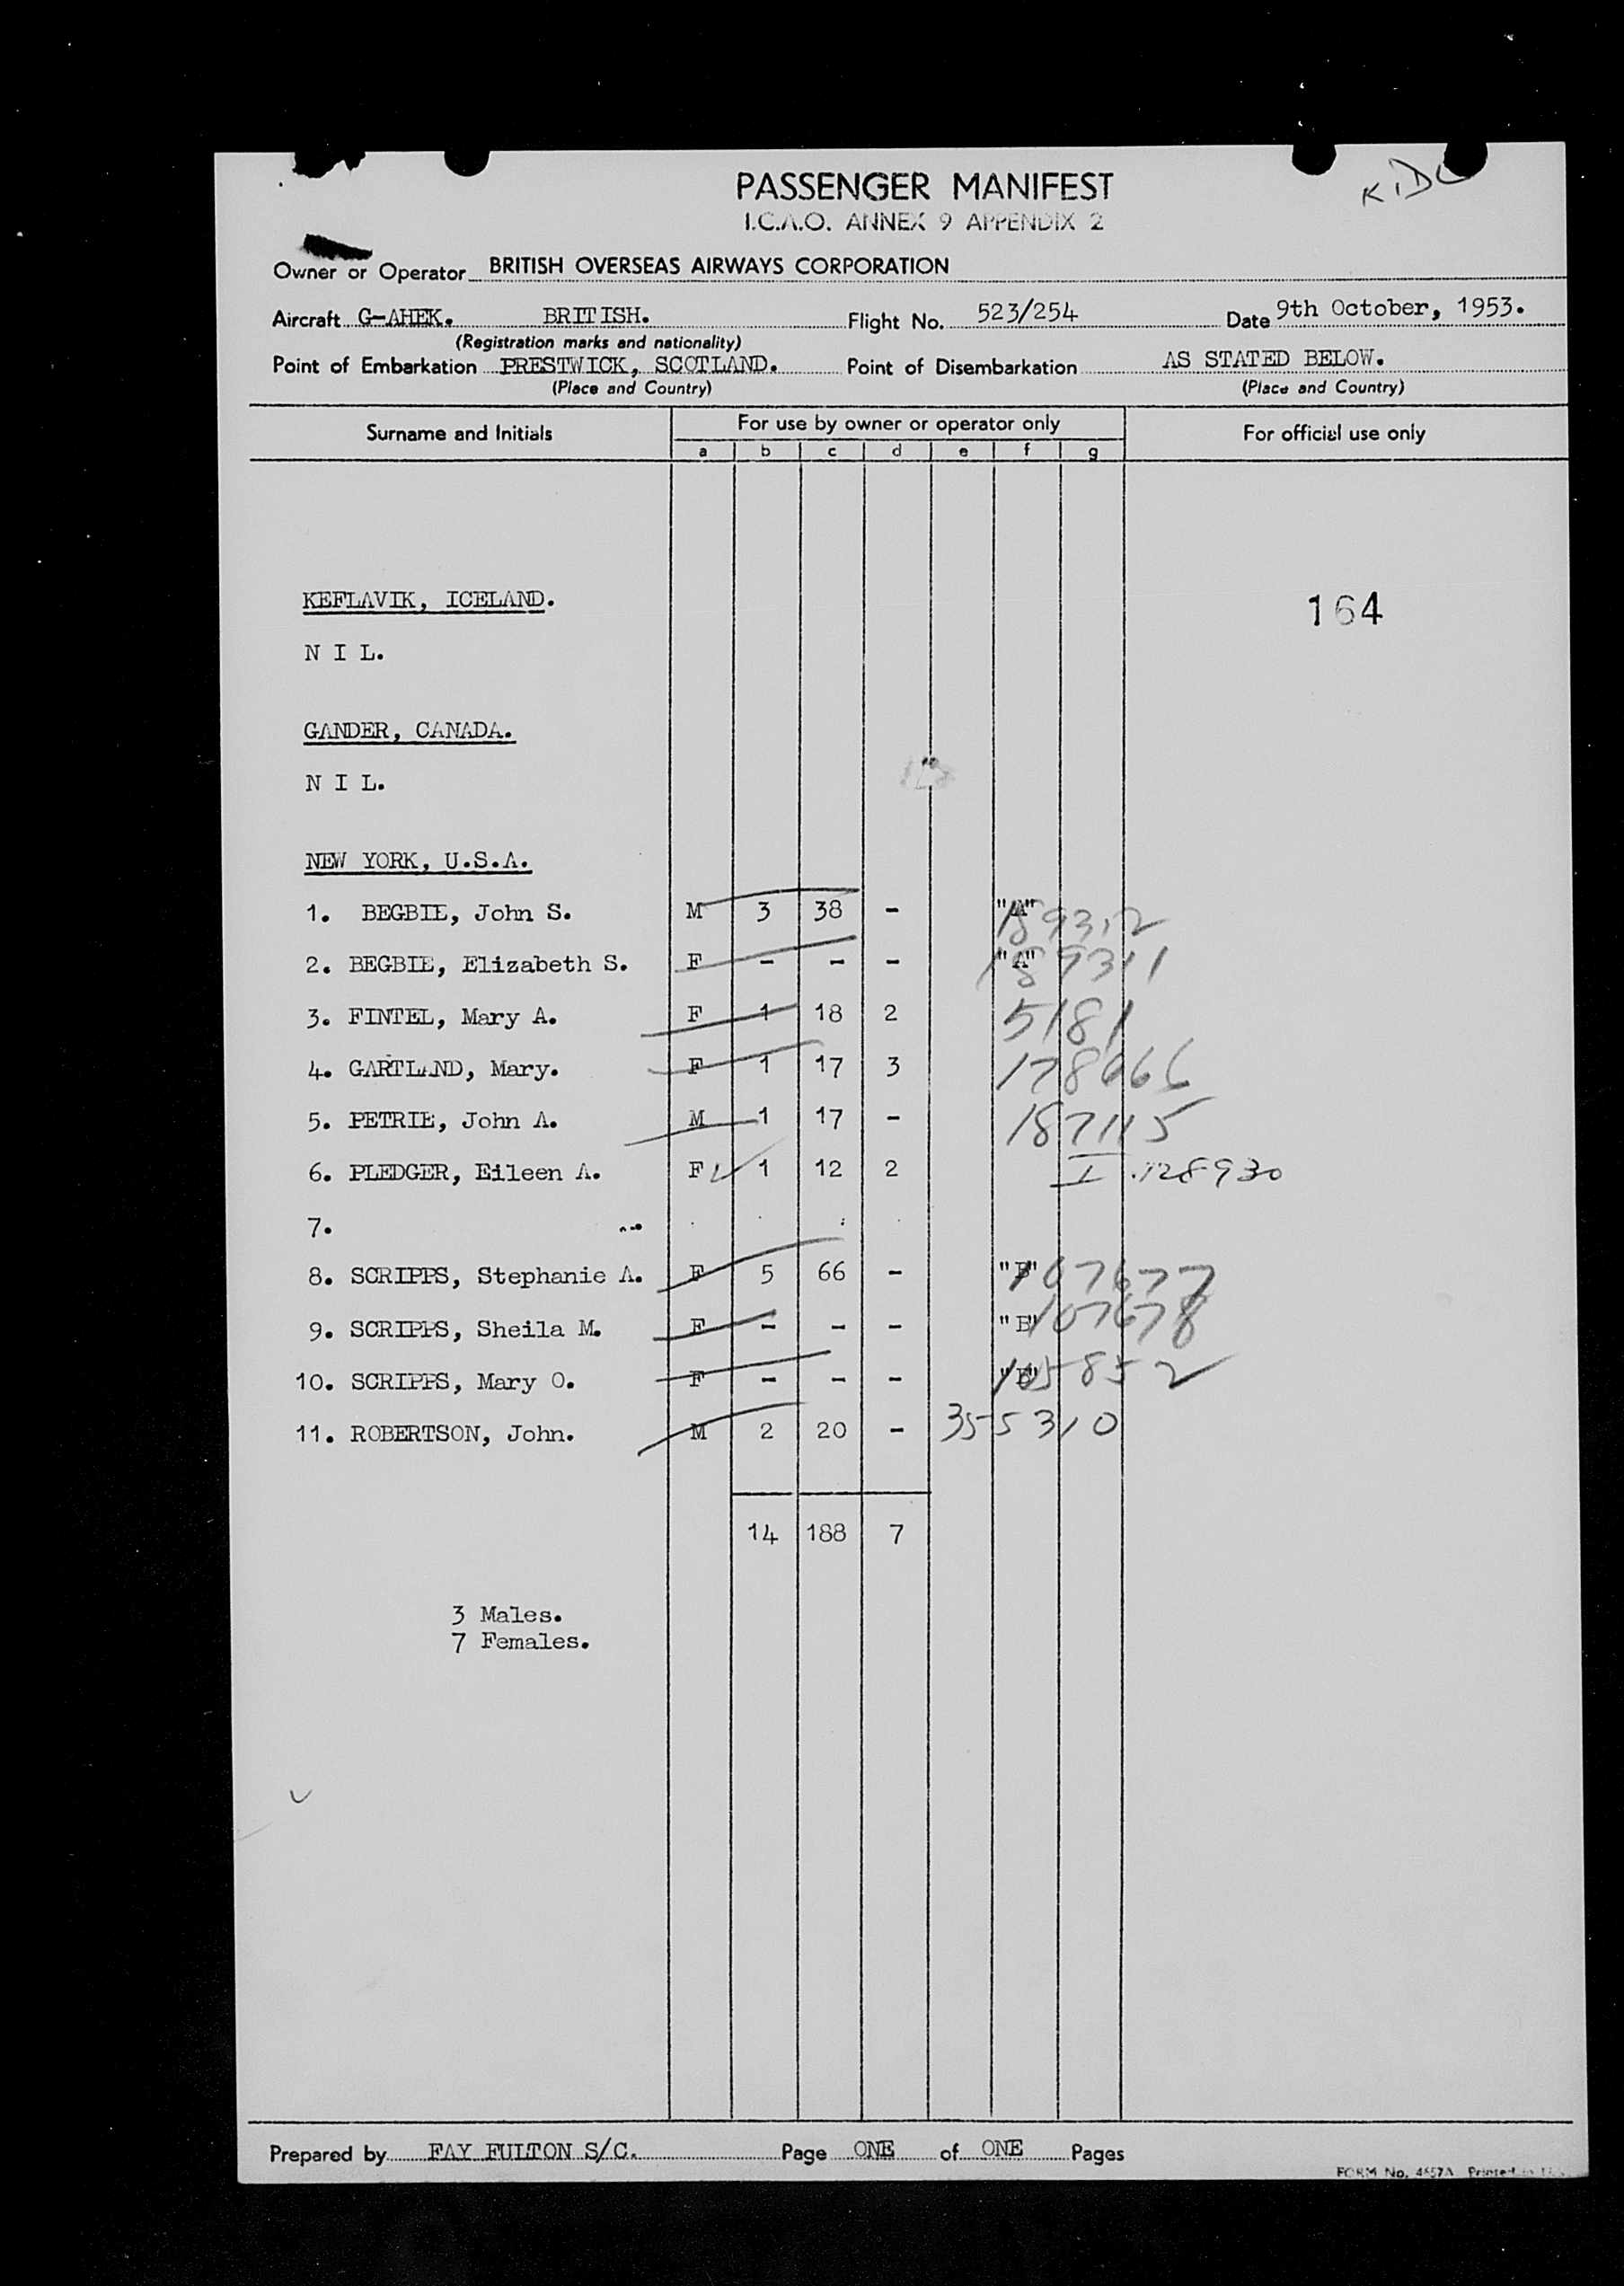 KIDL
PASSENGER MANIFEST
I.C.A.O. ANNEX 9 APPENDIX 2
Owner or Operator BRITISH OVERSEAS AIRWAYS CORPORATION
Aircraft G-AHEK. BRITISH. Flight No. 523/254 Date 9th October, 1953.
(Registration marks and nationality)
Point of Embarkation PRESTWICK, SCOTLAND. Point of Disembarkation AS STATED BELOW.
(Place and Country) (Place and Country)
Surname and Initials For use by owner or operator only For official use only
a b c d e f g
KEFLAVIK, ICELAND. 164
N I L.
GANDER, CANADA.
N I L.
NEW YORK, U.S.A.
1. BEGBIE, John S. M 3 38 - "A" 189312
2. BEGBIE, Elizabeth S. F - - - "A" 189311
3. FINTEL, Mary A. F 1 18 2 5181
4. GARTLAND, Mary. F 1 17 3 178666
5. PETRIE, John A. M 1 17 - 187115
6. PLEDGER, Eileen A. F 1 12 2 I 128930
7.
8. SCRIPPS, Stephanie A. F 5 66 - "B" 107677
9. SCRIPPS, Sheila M. F - - - "B" 107678
10. SCRIPPS, Mary O. F - - - "B" 105852
11. ROBERTSON, John. M 2 20 - 355310
14 188 7
3 Males.
7 Females.
Prepared by FAY FULTON S/C. Page ONE of ONE Pages
FORM No. 4657A Printed in